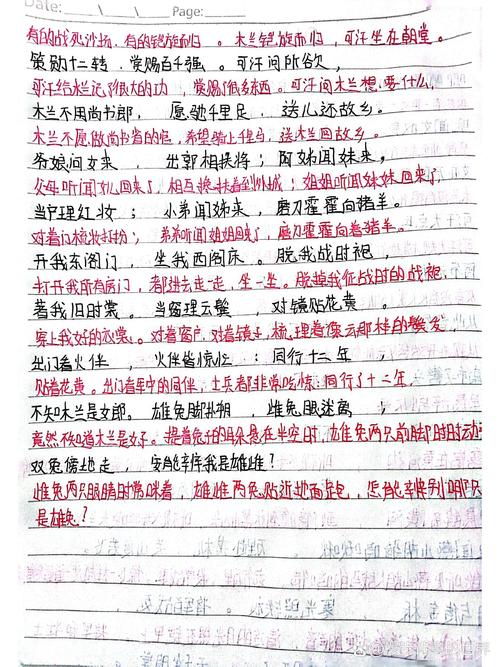 Date: Page:
有的战死沙场,有的凯旋而归。木兰凯旋而归,可汗坐在朝堂。
策勋十二转,赏赐百千强。可汗问所欲,
可汗给木兰记了很大的功,赏赐了很多东西。可汗问木兰想要什么,
木兰不用尚书郎,愿驰千里足,送儿还故乡。
木兰不愿做尚书省的官,希望骑上千里马,送木兰回故乡。
爷娘闻女来,出郭相扶将;阿姊闻妹来,
父母听闻女儿回来了,相互搀扶着到外城;姐姐听闻妹妹回来了,
当户理红妆;小弟闻姊来,磨刀霍霍向猪羊。
对着门梳妆打扮;弟弟听闻姐姐回来了,磨刀霍霍向着猪羊。
开我东阁门,坐我西阁床。脱我战时袍,
打开我所有房门,都进去走一走,坐一坐。脱掉我征战时的战袍,
著我旧时裳。当窗理云鬓,对镜贴花黄。
穿上我女子的衣裳。对着窗户,对着镜子,梳理着像云那样的鬓发,
出门看火伴,火伴皆惊忙:同行十二年,
贴着花黄。出门看军中的同伴,士兵都非常吃惊:同行了十二年,
不知木兰是女郎。雄兔脚扑朔,雌兔眼迷离;
竟然不知道木兰是女子。提着兔子的耳朵悬在半空时,雄兔两只前脚时时动弹
双兔傍地走,安能辨我是雄雌?
雌兔两只眼睛时常眯着,雄雌两兔贴近地面跑,怎能辨别哪只
是雄兔?